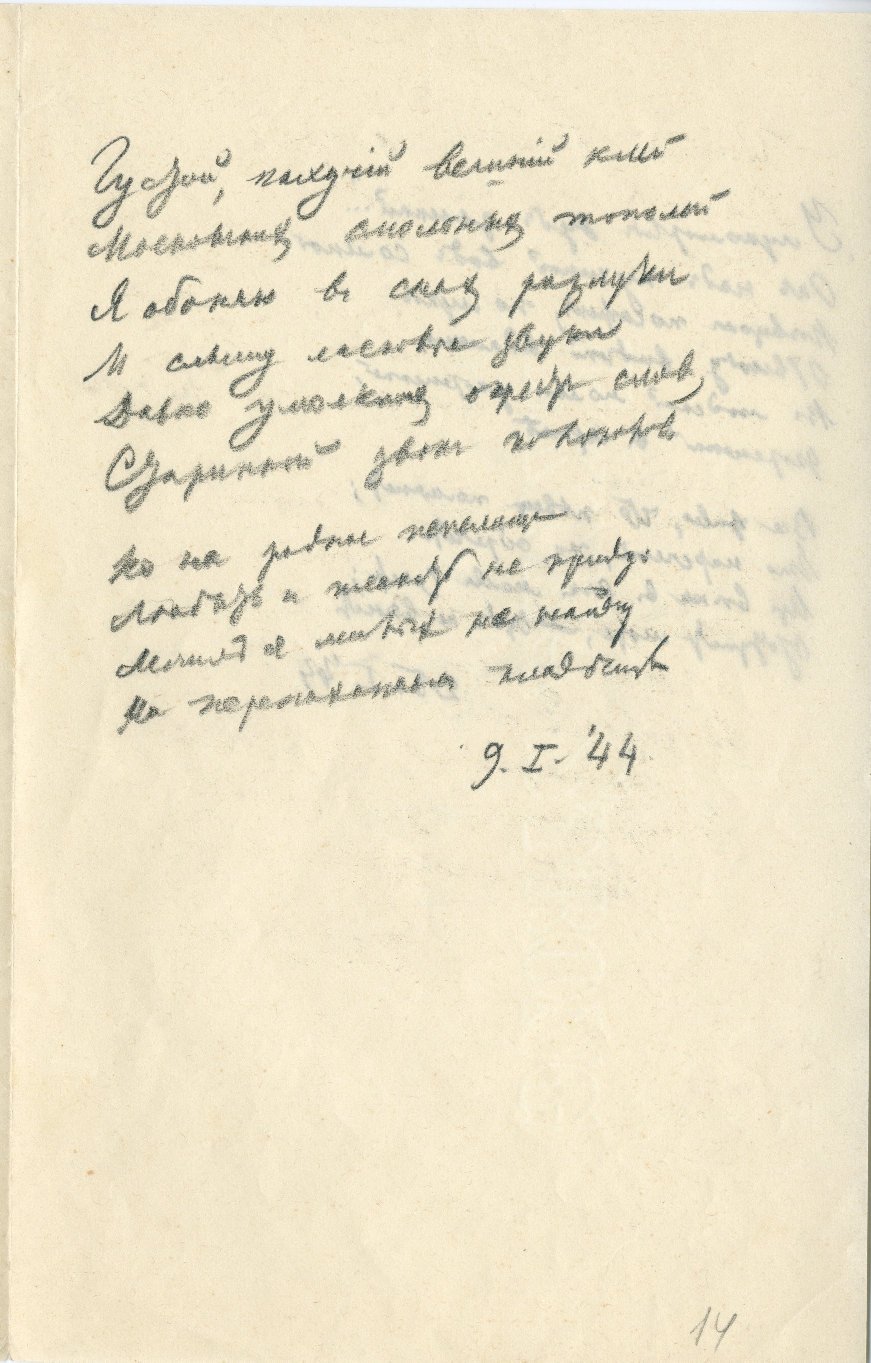 Густой, пахучій вешній клей
Московских смольных тополей
Я обоняю в снах разлуки
И слышу ласковые звуки
Давно умолкших окрест слов,
Старинный звон колоколов
Но на родное пепелище
Любить и плакать не приду:
Могил я милых не найду
На перепаханном кладбище
9. I. '44.
14